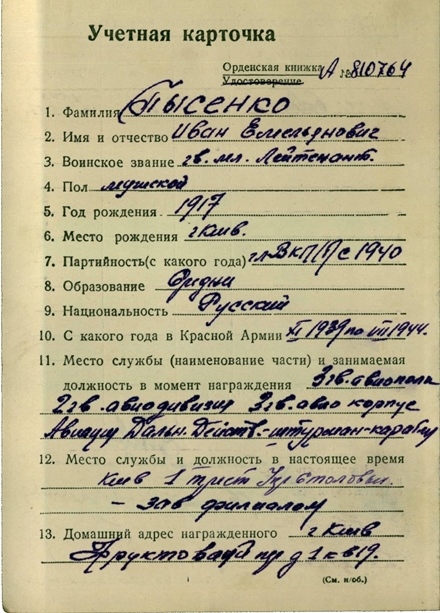 Учетная карточка
Орденская книжка А № 810764
Удостоверение
1. Фамилия Тысенко
2. Имя и отчество Иван Емельянович
3. Воинское звание гв. мл. Лейтенант.
4. Пол мужской
5. Год рождения 1917
6. Место рождения г Киев.
7. Партийность(с какого года) ВКП(б) с 1940
8. Образование Средн
9. Национальность Русский
10. С какого года в Красной Армии XI 1939 по III 1944.
11. Место службы (наименование части) и занимаемая
должность в момент награждения 3 гв. авиополк
2 гв. авиодивизия 3 гв. авио корпус
Дальн. Действ.-штурман-корабля
12. Место службы и должность в настоящее время
Киев 1 трест
- зав филиалом
13. Домашний адрес награжденного г Киев
д 2 кв 19.
(См. н/об.)